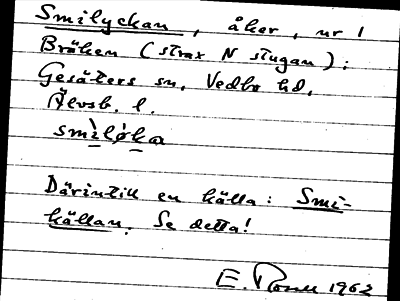 Smilyckan, åker, nr 1
Bråken (strax N stugan);
Gesäters sn, Vedbo hd,
Älvsb. l.
smìlo̍ka
Därintill en källa: Smi-
källan. Se detta!
E. Rosell 1962